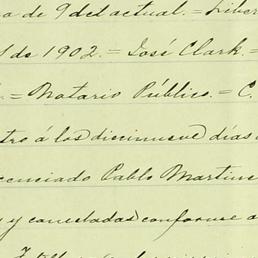 de 9 del actual. = Liber
de 1902. = José Clark. =
= Notario Público. = C.
tro á los diecinueve dias
cenciado Pablo Martine
y canceladas conforme a